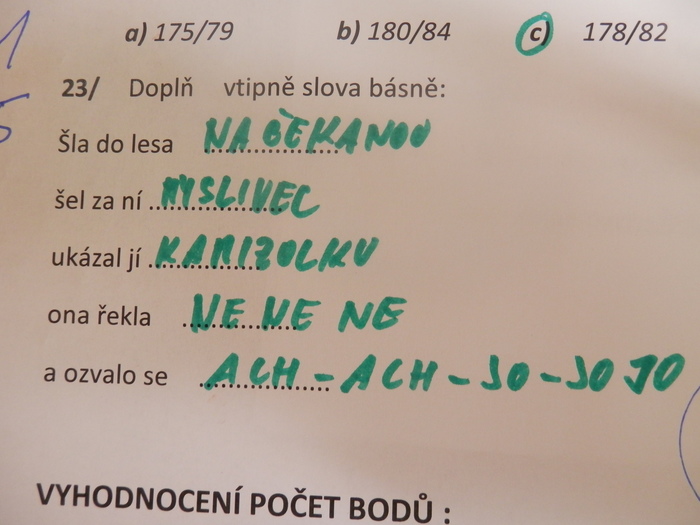 a) 175/79 b) 180/84 c) 178/82
23/ Doplň vtipně slova básně:
Šla do lesa NA ČEKANOU
šel za ní MYSLIVEC
ukázal jí KAMIZOLKU
ona řekla NE NE NE
a ozvalo se ACH - ACH - JO - JO JO
VYHODNOCENÍ POČET BODŮ :